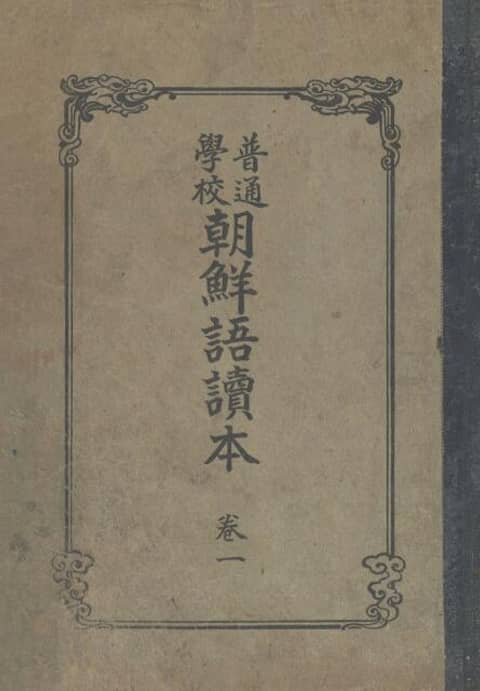 普通
學校
朝鮮語讀本
卷一